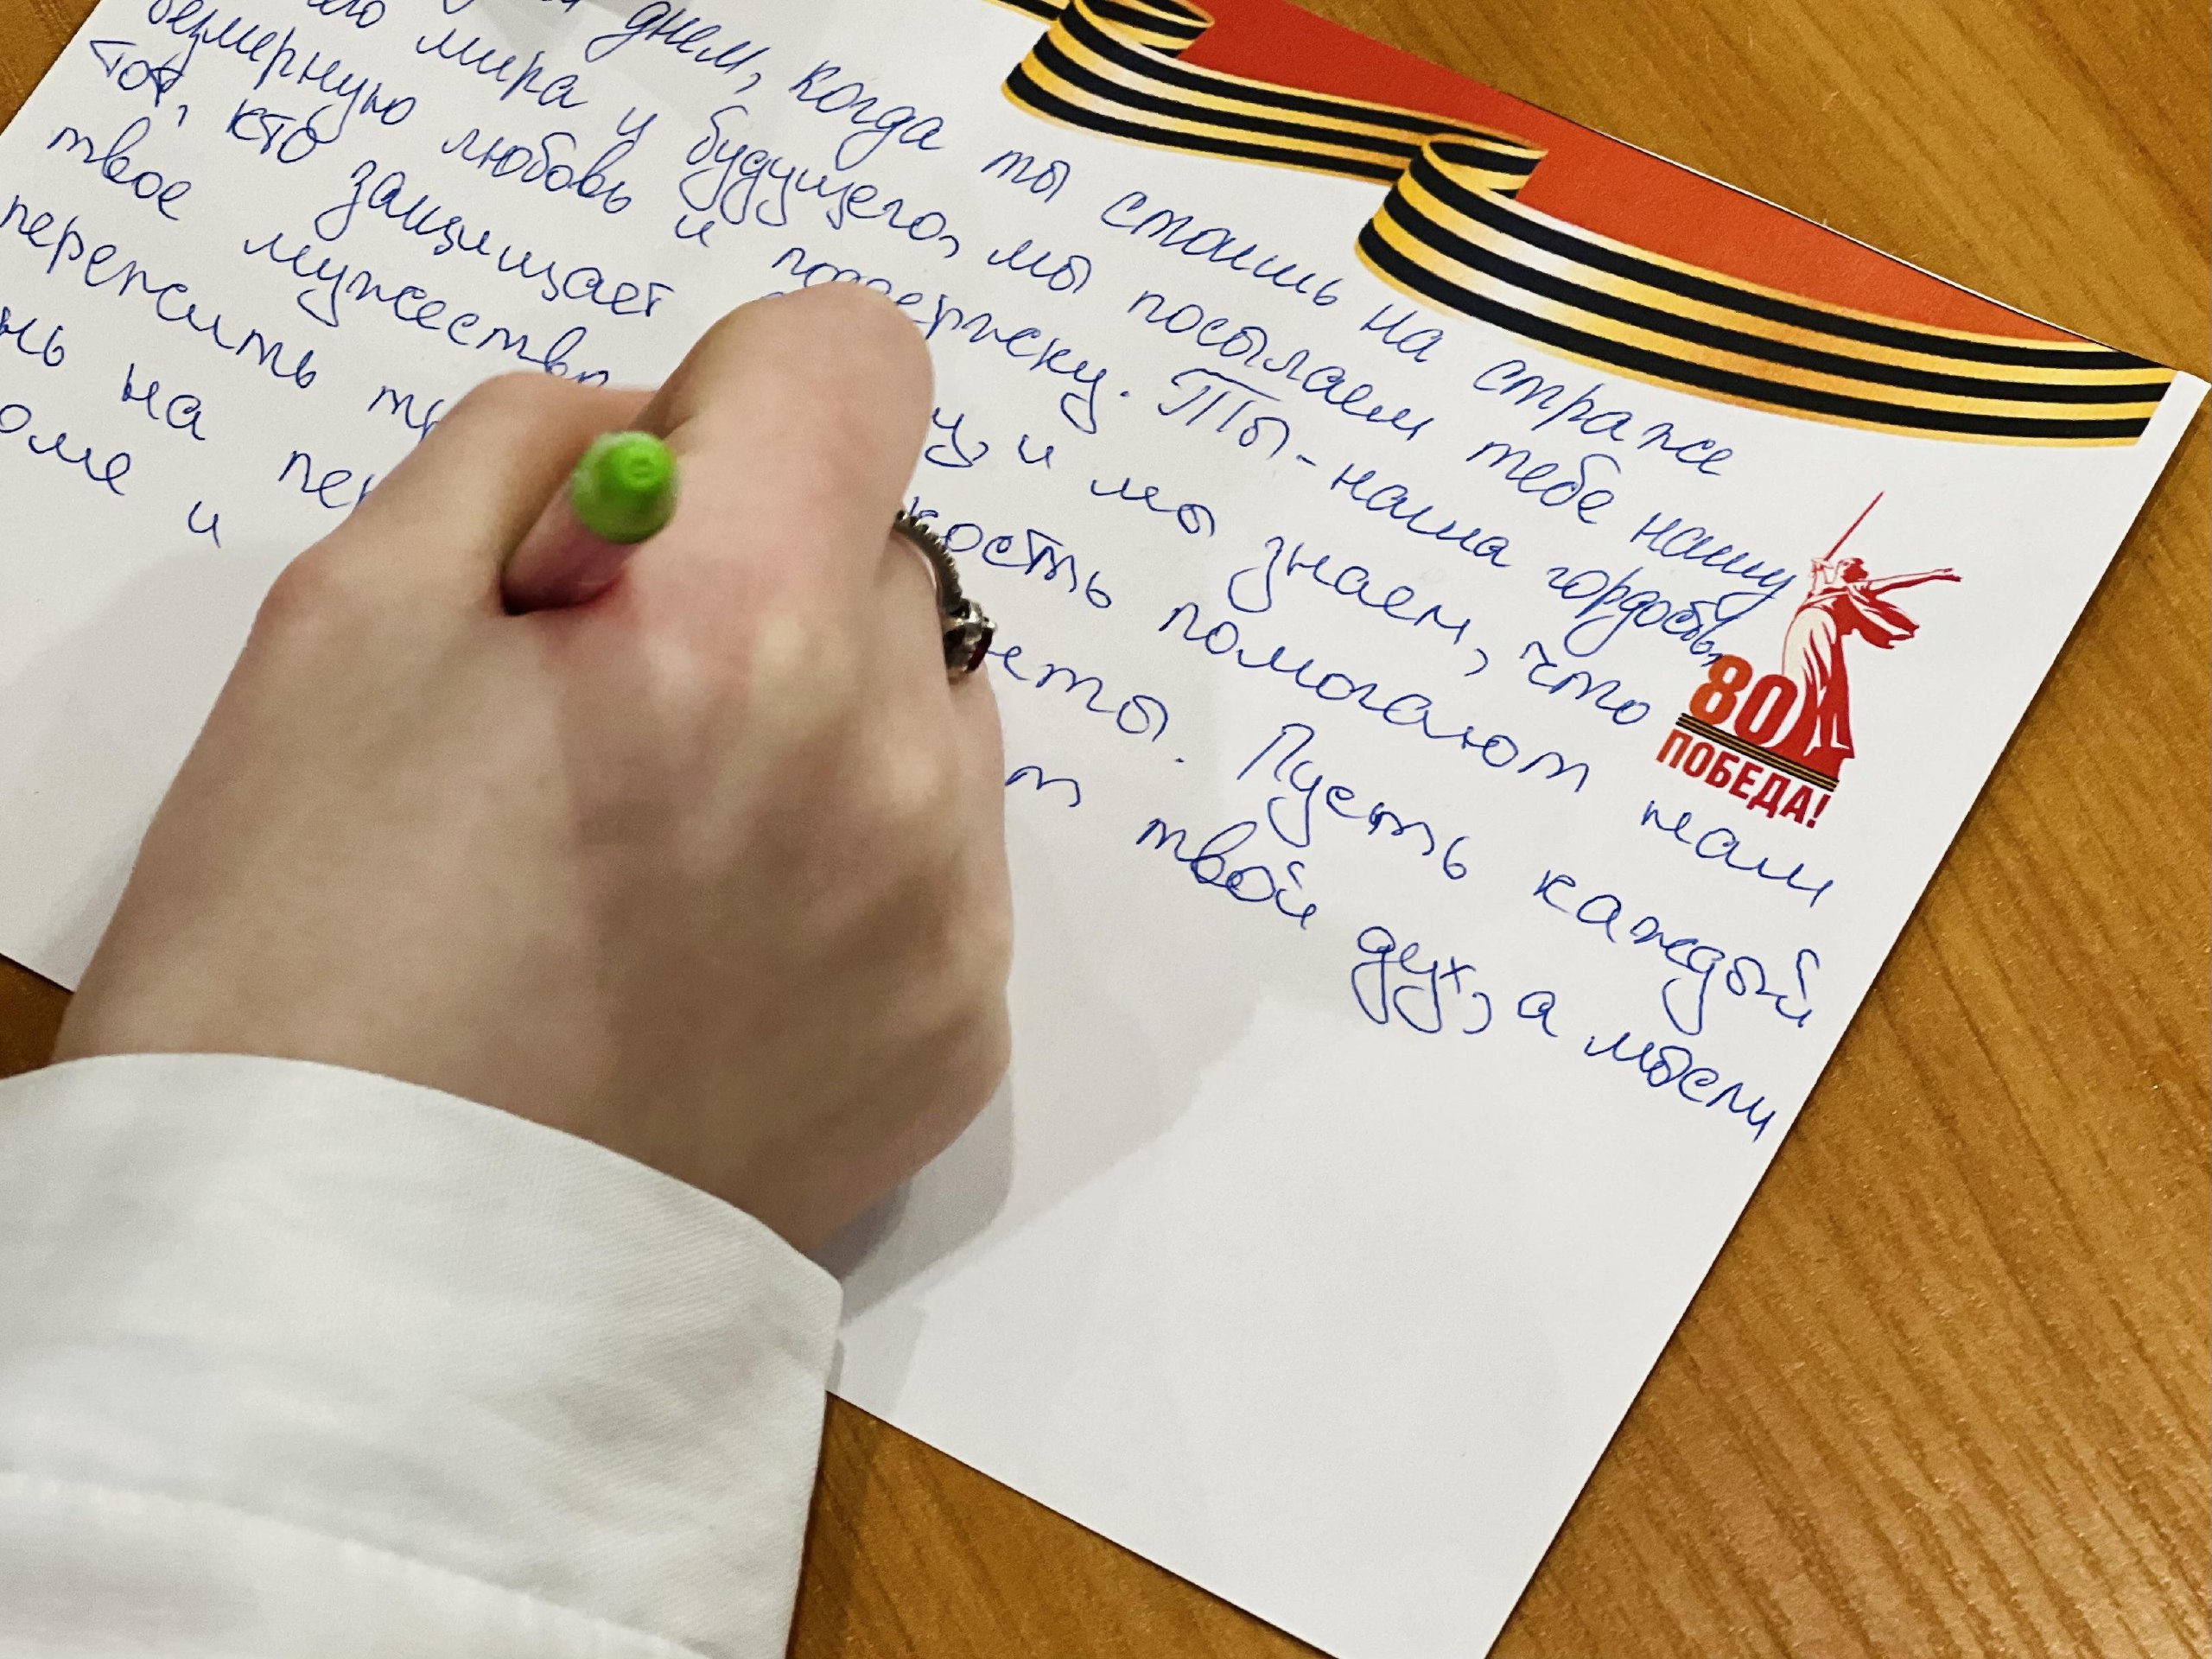 днем, когда ты стоишь на страже
мира и будущего, мы посылаем тебе нашу
безмерную любовь и поддержку. Ты - наша гордость,
тот, кто защищает и мы знаем, что
твое мужество помогают нам
пережить Пусть каждый
на твой дух, а мысли
и
80
ПОБЕДА!